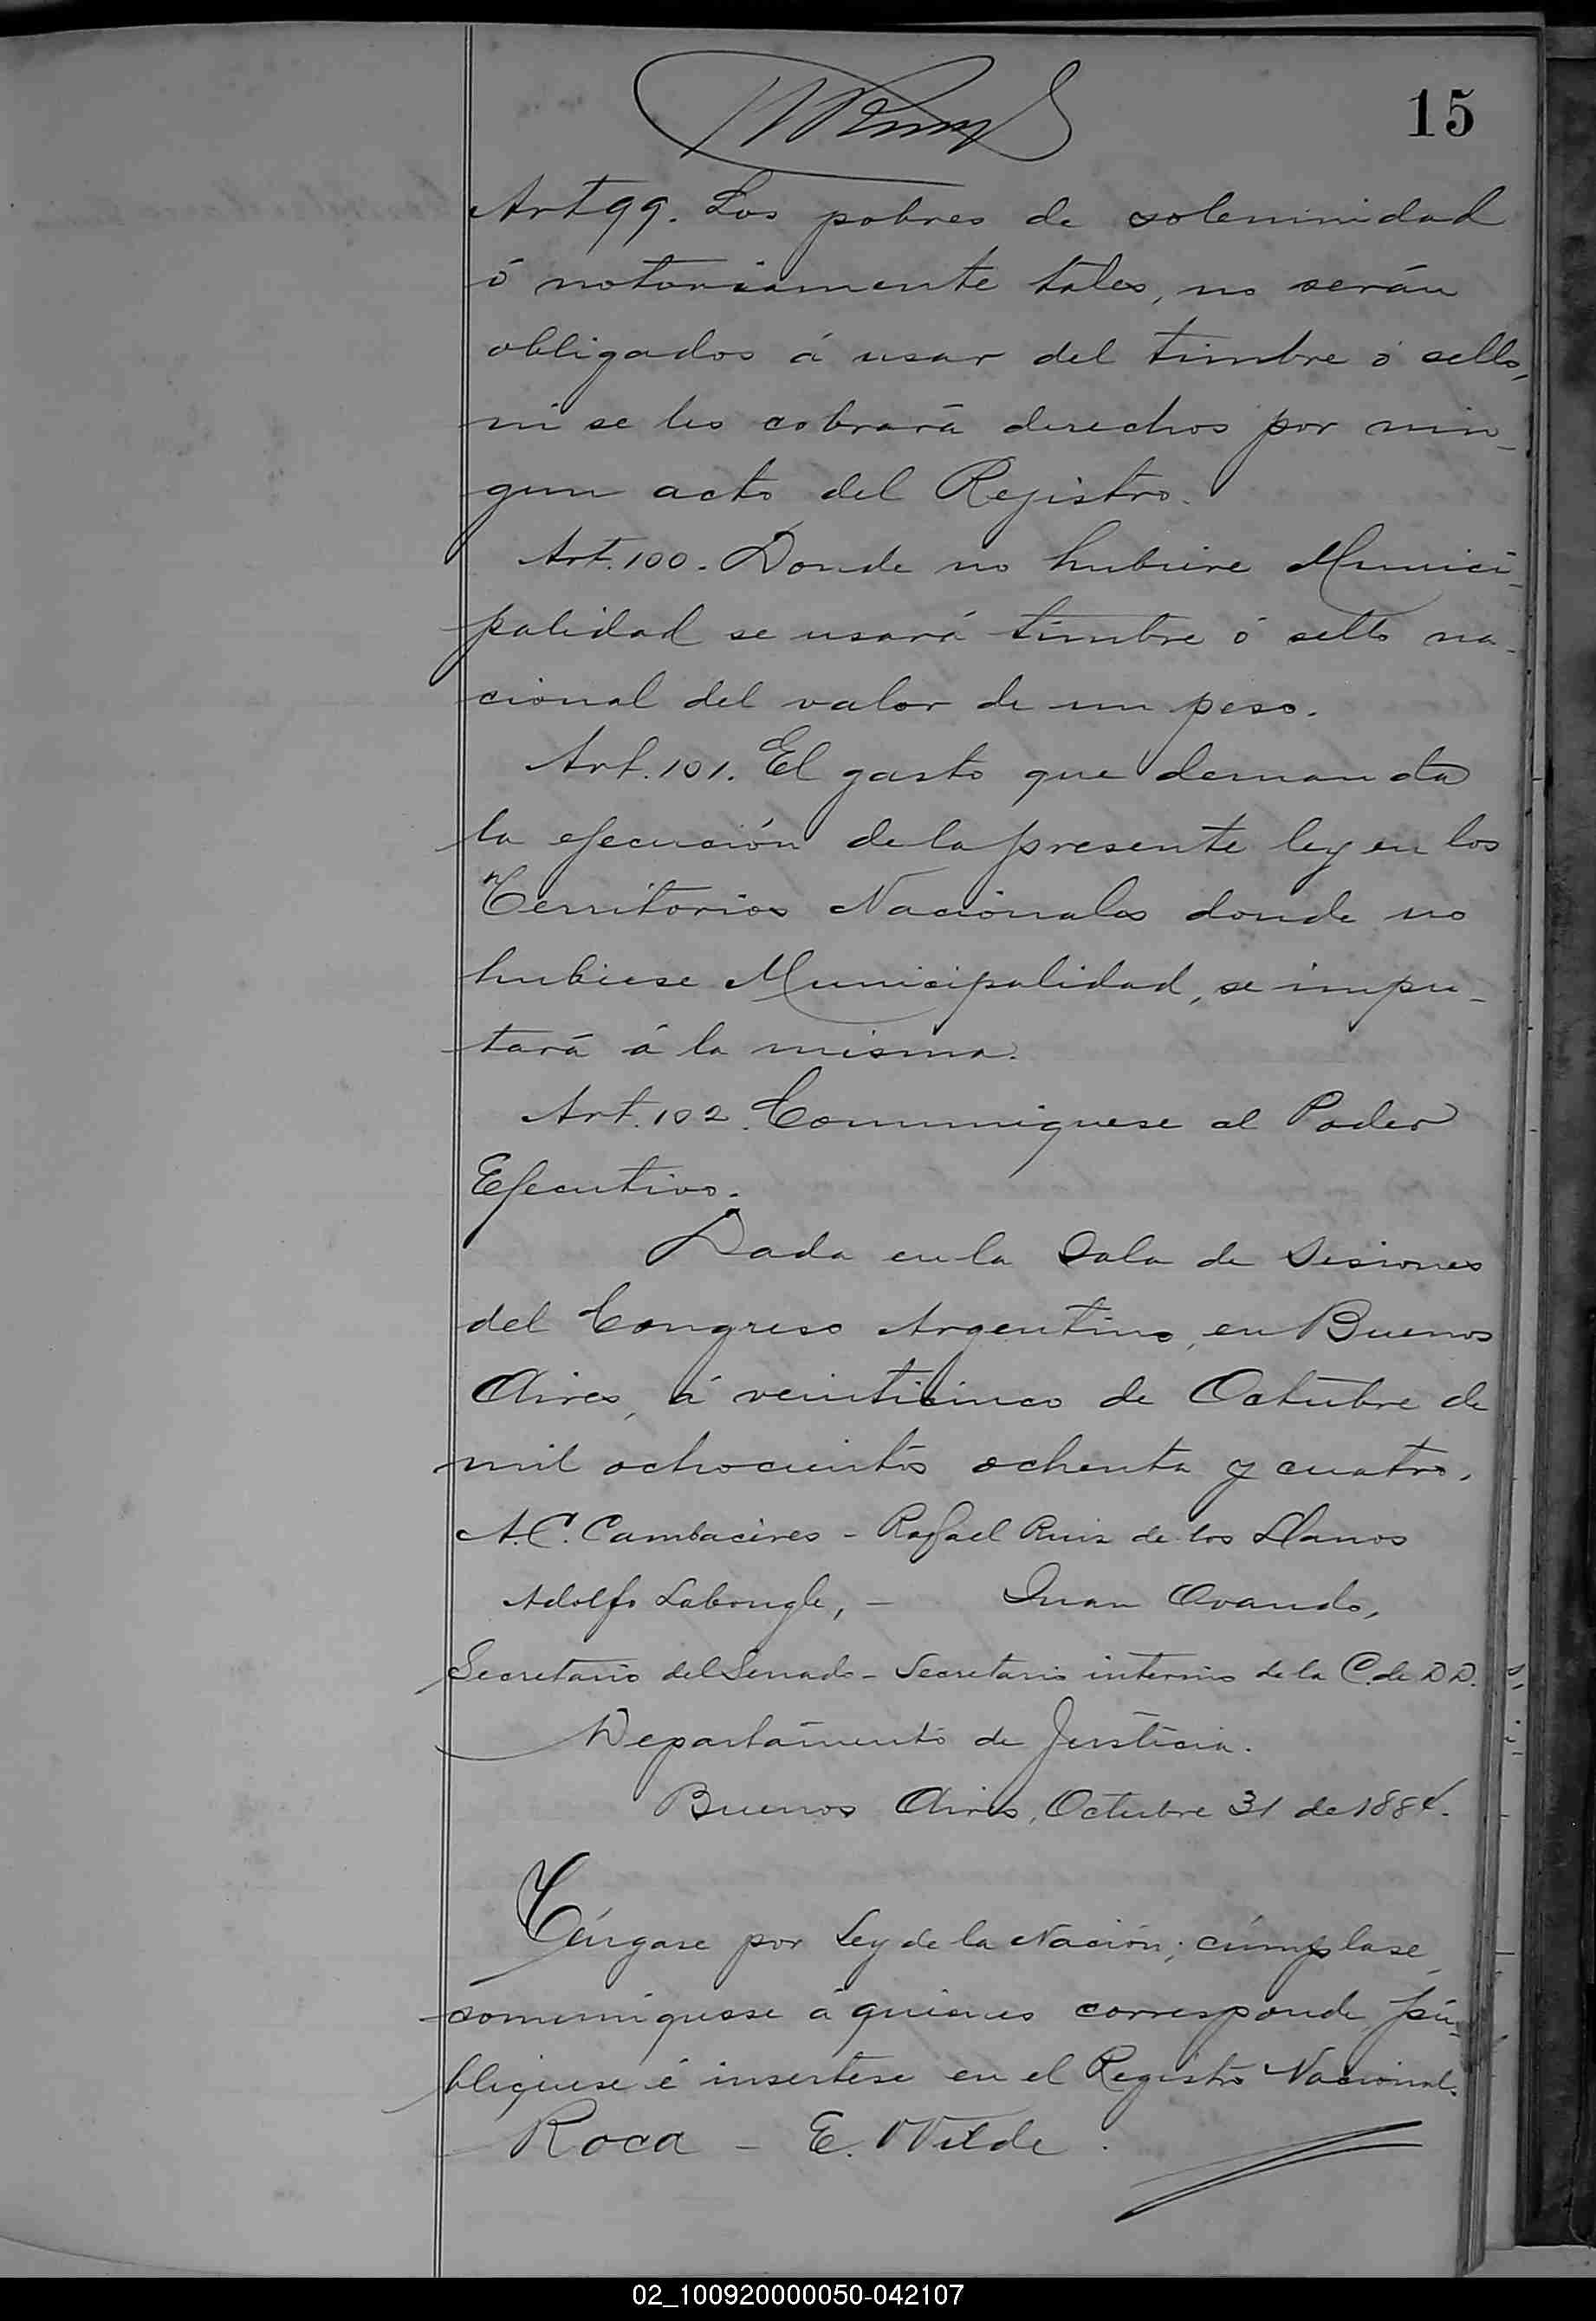 15
Art 99. Los pobres de solemnidad
ó notoriamente tales, no serán
obligados á usar del timbre ó sello,
ni se les cobrará derechos por nin-
gun acto del Registro.
Art. 100. Donde no hubiere Munici-
palidad se usará timbre ó sello na-
cional del valor de un peso.
Art. 101. El gasto que demanda
la ejecución de la presente ley en los
Territorios Nacionales donde no
hubiese Municipalidad, se impu-
tará á la misma.
Art. 102. Comuniquese al Poder
Ejecutivo.
Dada en la Sala de Sesiones
del Congreso Argentino, en Buenos
Aires, á veinticinco de Octubre de
mil ochocientos ochenta y cuatro.
A. C. Cambacères - Rafael Ruiz de los Llanos
Adolfo Labougle, - Juan Ovando,
Secretario del Senado - Secretario interino de la C. de DD.
Departamento de Justicia.
Buenos Aires, Octubre 31 de 1884.
Téngase por Ley de la Nación; cúmplase,
comuníquese á quienes corresponde, pú-
bliquese é insertese en el Registro Nacional.
Roca - E. Wilde.
02_100920000050-042107